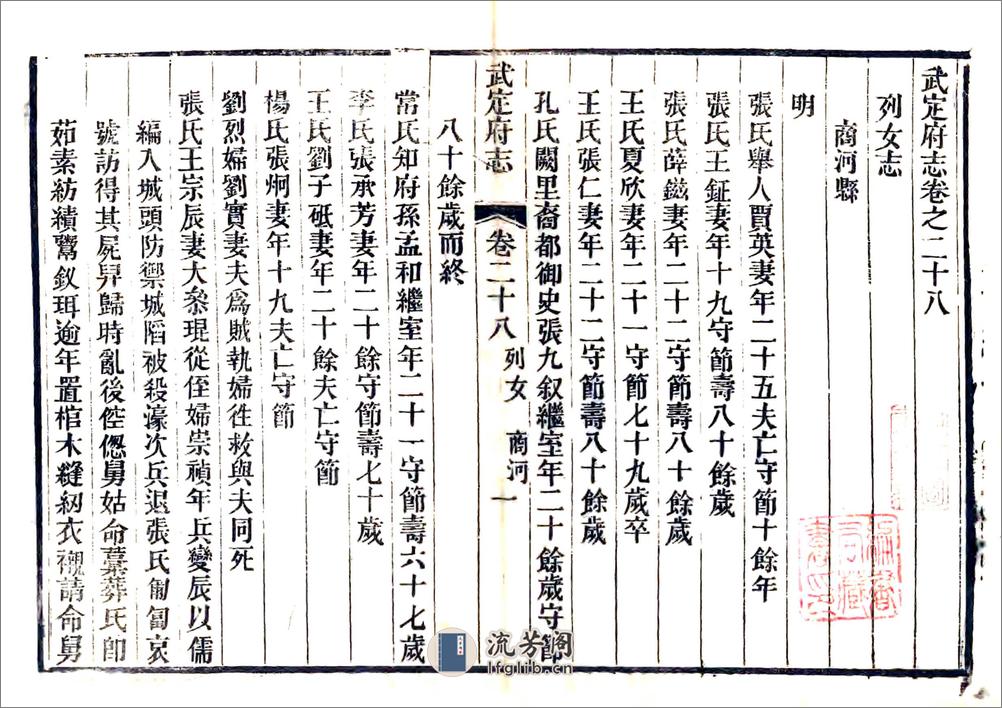 武定府志卷之二十八
列女志
商河縣
明
張氏舉人賈英妻年二十五夫亡守節十餘年
張氏王鉦妻年十九守節壽八十餘歲
張氏薛鎡妻年二十二守節壽八十餘歲
王氏夏欣妻年二十一守節七十九歲卒
王氏張仁妻年二十二守節壽八十餘歲
孔氏闕里裔都御史張九叙繼室年二十餘歲守節
武定府志 卷二十八 列女 商河 一
八十餘歲而終
常氏知府孫孟和繼室年二十一守節壽六十七歲
李氏張承芳妻年二十餘守節壽七十歲
王氏劉子砥妻年二十餘夫亡守節
楊氏張炯妻年十九夫亡守節
劉烈婦劉實妻夫爲賊執婦徃救與夫同死
張氏王宗辰妻大叅琨從侄婦崇禎年兵變辰以儒
編入城頭防禦城陷被殺濠次兵退張氏匍匐哀
號訪得其屍舁歸時亂後倥偬舅姑命藁葬氏卽
茹素紡績鬻釵珥逾年置棺木縫紉衣襯請命舅
流芳閣
lfglib.cn